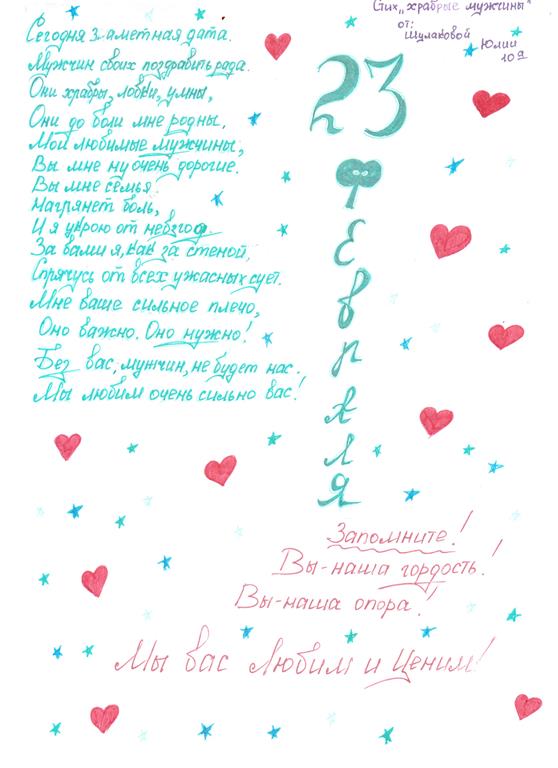 Стих „храбрые мужчины"
от:
Шулаковой
Юлии
10а
Сегодня заметная дата.
Мужчин своих поздравить рада.
Они храбры, ловки, умны,
Они до боли мне родны.
Мои любимые мужчины,
Вы мне ну очень дорогие.
Вы мне семья.
Нагрянет боль,
И я укрою от невзгод.
За вами я, как за стеной,
Спрячусь от всех ужасных сует.
Мне ваше сильное плечо,
Оно важно. Оно нужно!
Без вас, мужчин, не будет нас.
Мы любим очень сильно вас!
23
Февраля
Запомните!
Вы-наша гордость!
Вы-наша опора!
Мы вас Любим и Ценим!